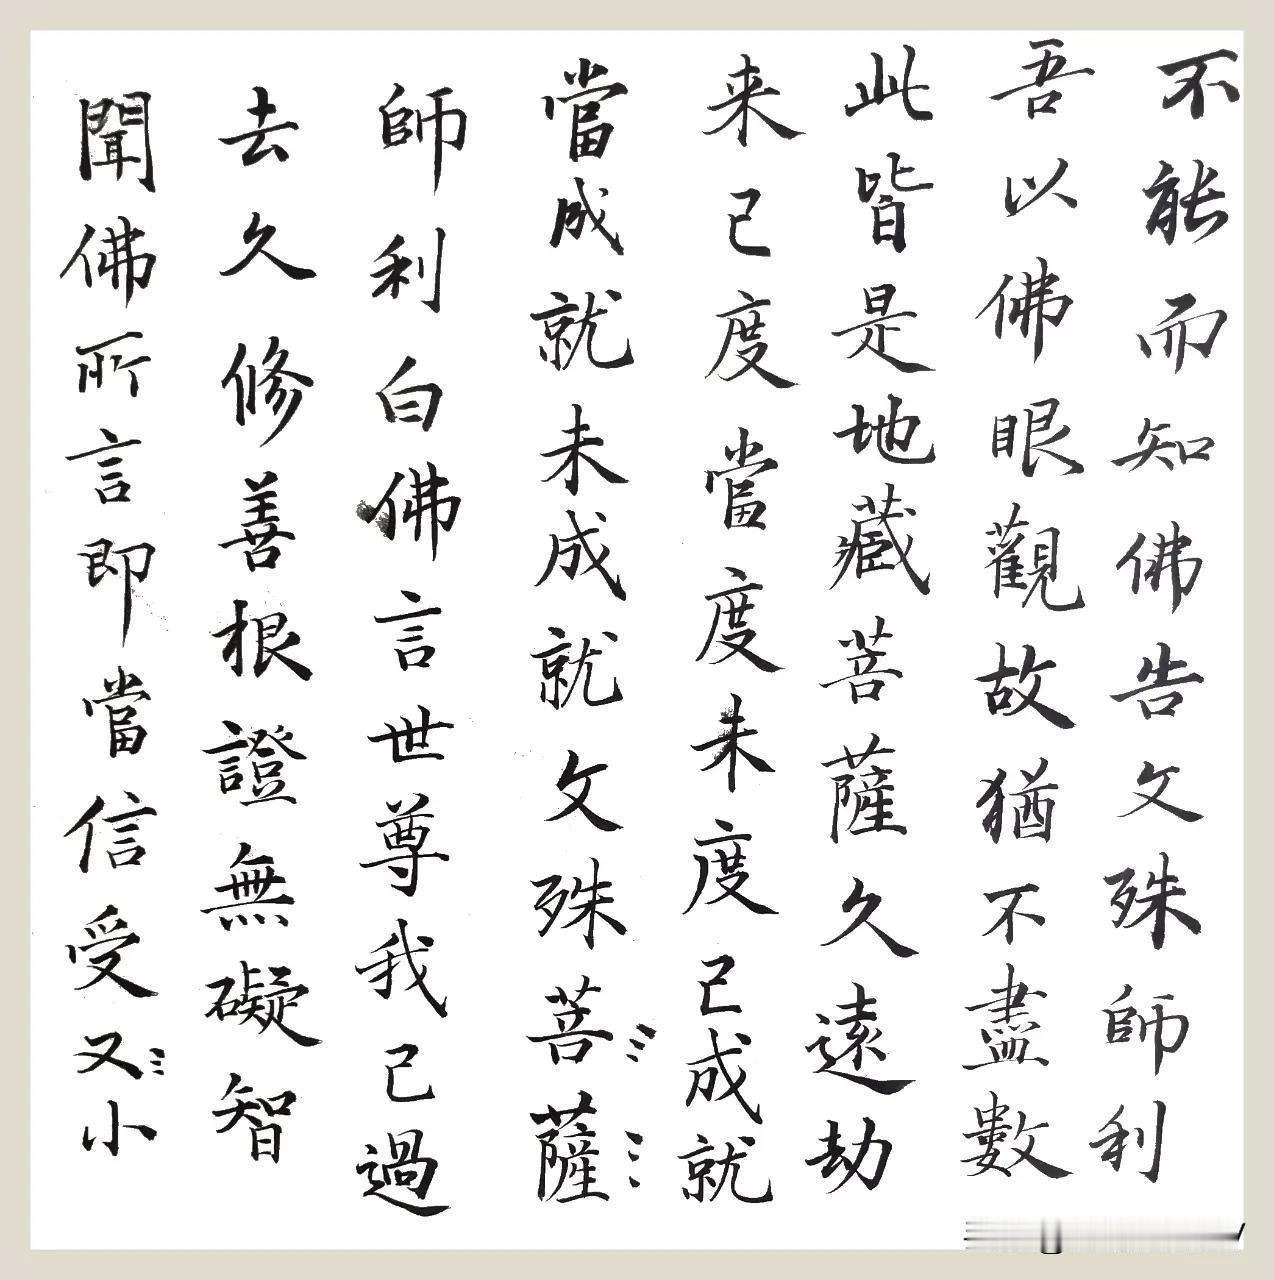 不能而知佛告文殊師利
吾以佛眼觀故猶不盡數
此皆是地藏菩薩久遠劫
来已度當度未度已成就
當成就未成就文殊菩薩
師利白佛言世尊我已過
去久修善根證無礙智
聞佛所言即當信受又小